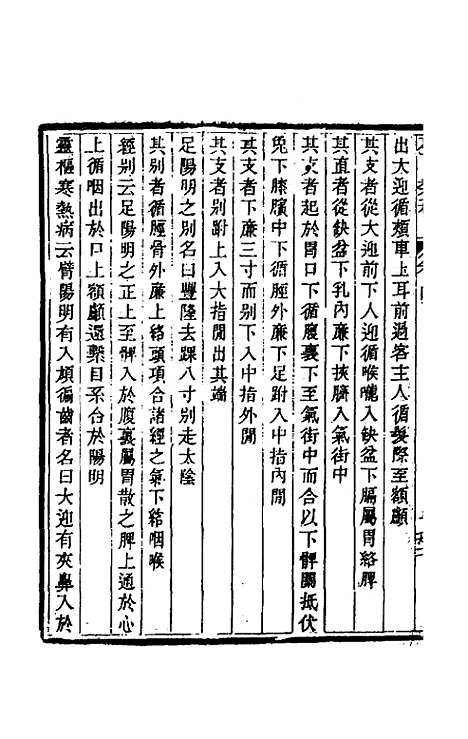 出大迎循頰車上耳前過客主人循髮際至額顱
其支者從大迎前下人迎循喉嚨入缺盆下膈屬胃絡脾
其直者從缺盆下乳內廉下挾臍入氣街中
其支者起於胃口下循腹裏下至氣街中而合以下髀關抵伏
兔下膝臏中下循脛外廉下足跗入中指內閒
其支者下廉三寸而别下入中指外閒
其支者别跗上入大指閒出其端
足陽明之别名曰豐隆去踝八寸别走太陰
其别者循脛骨外廉上絡頭項合諸經之氣下絡咽喉
經别云足陽明之正上至髀入於腹裏屬胃散之脾上通於心
上循咽出於口上額顱還繫目系合於陽明
靈樞寒熱病云臂陽明有入頄徧齒者名曰大迎有夾鼻入於